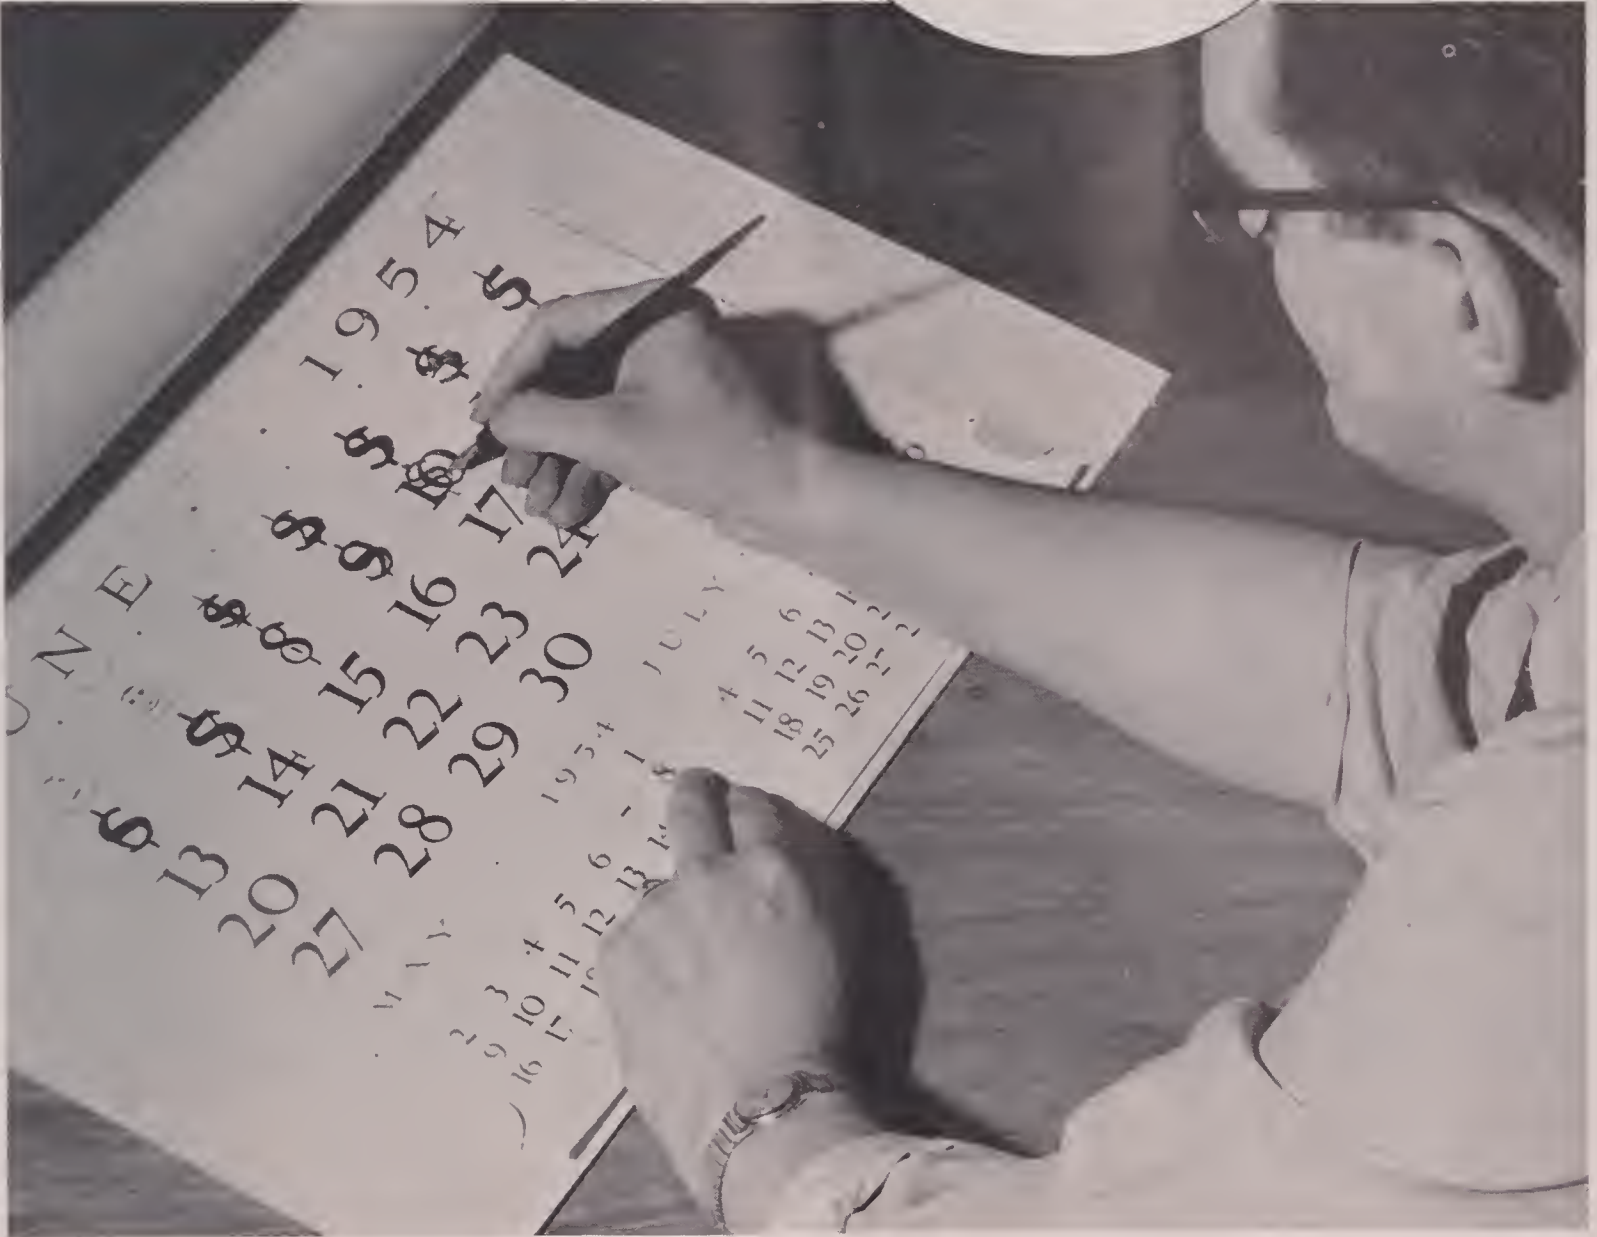 UNE 1954
$ $ $ $ $
$ $ 8 9 10
13 14 15 16 17
20 21 22 23 24
27 28 29 30
MAY 1954
1
2 3 4 5 6 8
9 10 11 12 13
16
JULY
4 5 6
11 12 13
18 19 20
25 26